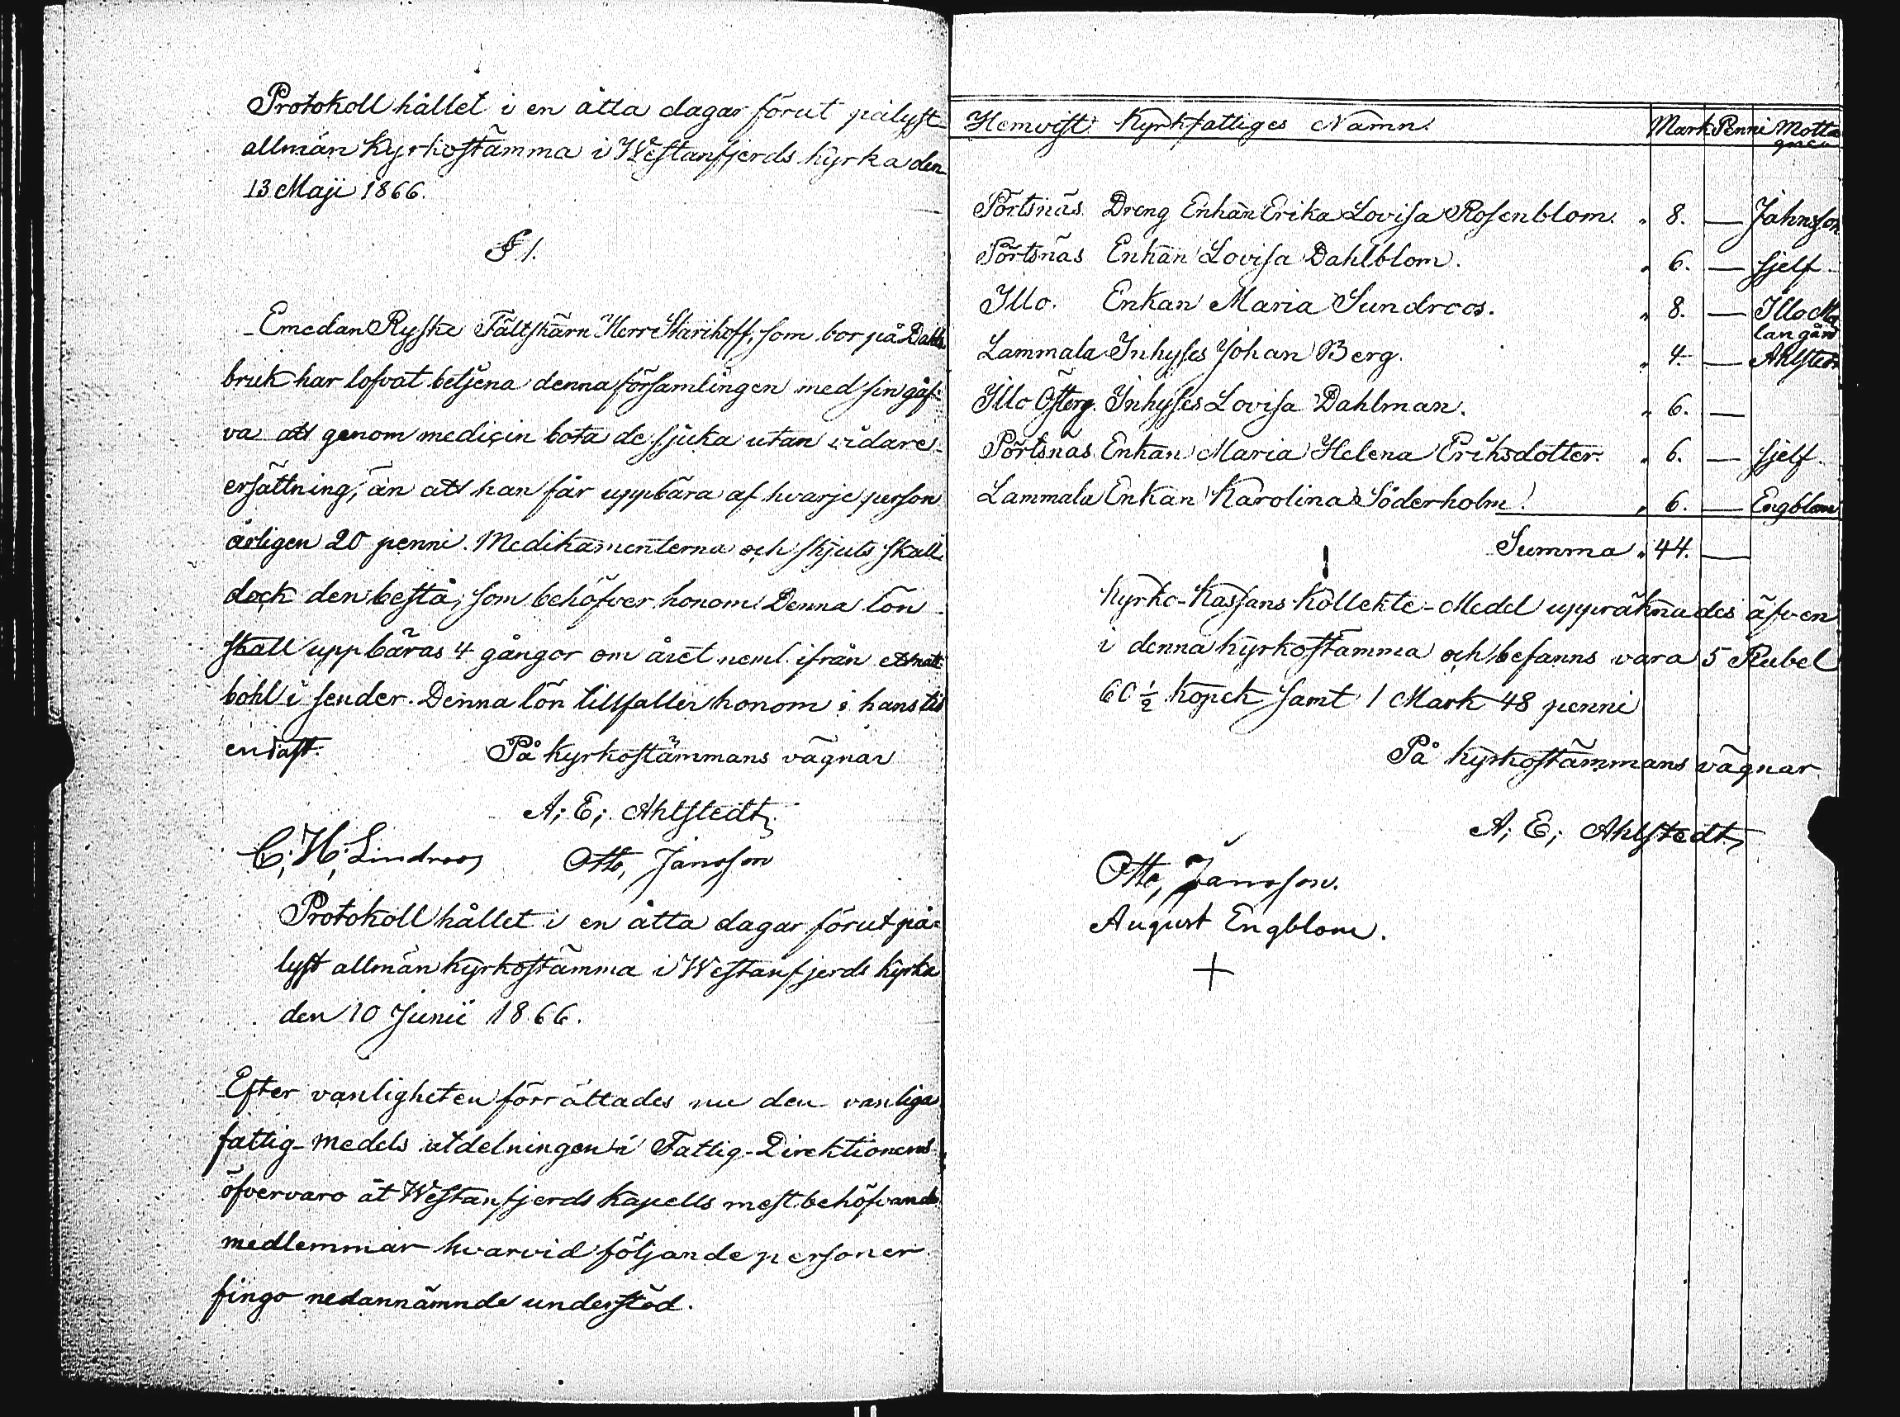 Protokoll hållet i en åtta dagar förut pålyst
allmän Kyrkostämma i Westanfjerds kyrka den
13 Maji 1866.
§ 1.
Emedan Ryske Fältskärn Herr Starikoff, som bor på Dahls
bruk har lofvat betjena denna församlingen med sin gåf-
va att genom medicin bota de sjuka utan vidare
ersättning, än att han får uppbära af hvarje person
årligen 20 penni. Medikamenterna och skjuts skall
dock den bestå, som behöfver honom. Denna lön
skall uppbäras 4 gångor om året neml. ifrån
bohl i sender. Denna lön tillfaller honom i hans tid
endast. På kyrkostämmans vägnar
A; E; Ahlstedt
C; H; Lindroos Otto, Jansson
Protokoll hållet i en åtta dagar förut på-
lyst allmän kyrkostämma i Westanfjerds kyrka
den 10 Junii 1866.
Efter vanligheten förrättades nu den vanliga
fattig-medels utdelningen i Fattig-Direktionens
öfvervaro åt Westanfjerds kapells mest behöfvande
medlemmar hvarvid följande personer
fingo nedannämnde understöd.
Hemvist Kyrkfattiges Namn. Mark Penni Motta
gner
Pörtsnäs Dreng Enkan Erika Lovisa Rosenblom. " 8. — Jahnsson
Pörtsnäs Enkan Lovisa Dahlblom. " 6. — sjelf
Illo. Enkan Maria Sundroos. " 8. — Illo Ma
langård
Lammala Inhyses Johan Berg. " 4 — Ahlstedt
Illo Österg. Inhyses Lovisa Dahlman. " 6. —
Pörtsnäs Enkan Maria Helena Eriksdotter. " 6. — sjelf
Lammala Enkan Karolina Söderholm. " 6. — Engblom
Summa " 44. —
Kyrko-Kassans Kollekte-Medel uppräknades äfven
i denna kyrkostämma och befanns vara 5 Rubel
60 ½ kopek samt 1 Mark 48 penni
På kyrkostämmans vägnar
A; E; Ahlstedt
Otto, Jansson.
August Engblom.
+